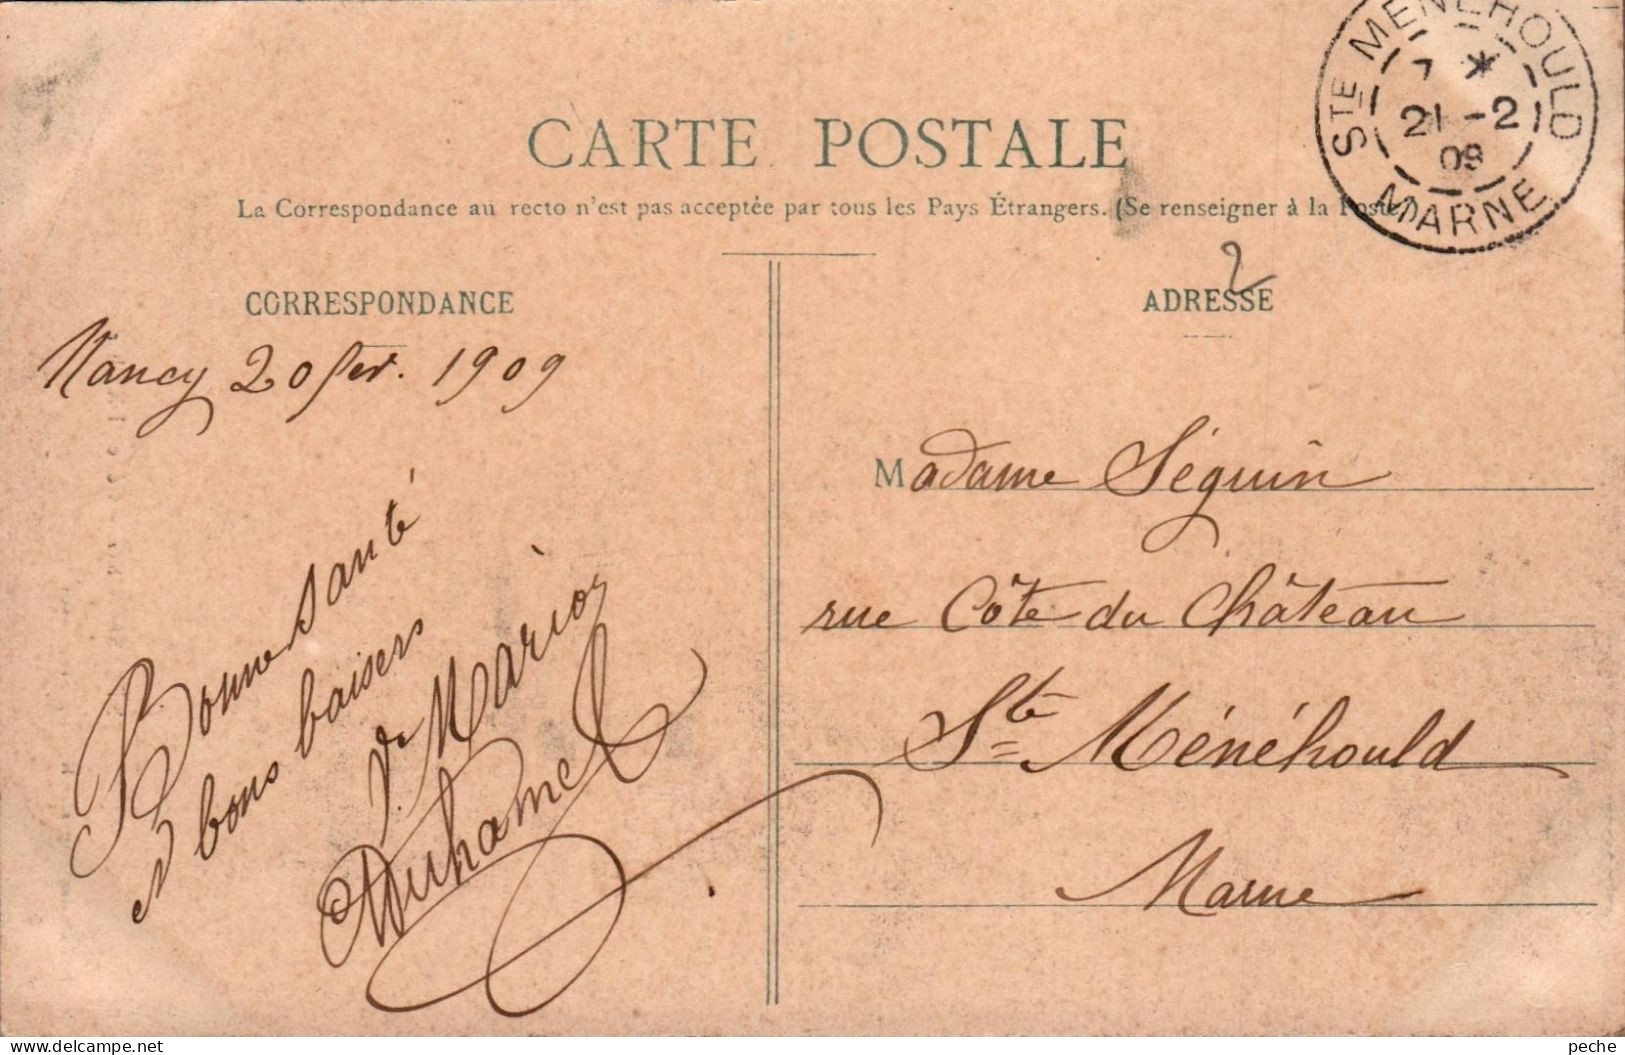 STE MENEHOULD
7 *
21 - 2
09
MARNE
CARTE POSTALE
La Correspondance au recto n'est pas acceptée par tous les Pays Étrangers. (Se renseigner à la Poste)
2
CORRESPONDANCE
Nancy 20 fev. 1909
Bonne santé
et bons baisers
Duhamel
ADRESSE
Madame Séguin
rue Côte du Château
Ste Ménéhould
Marne
peche